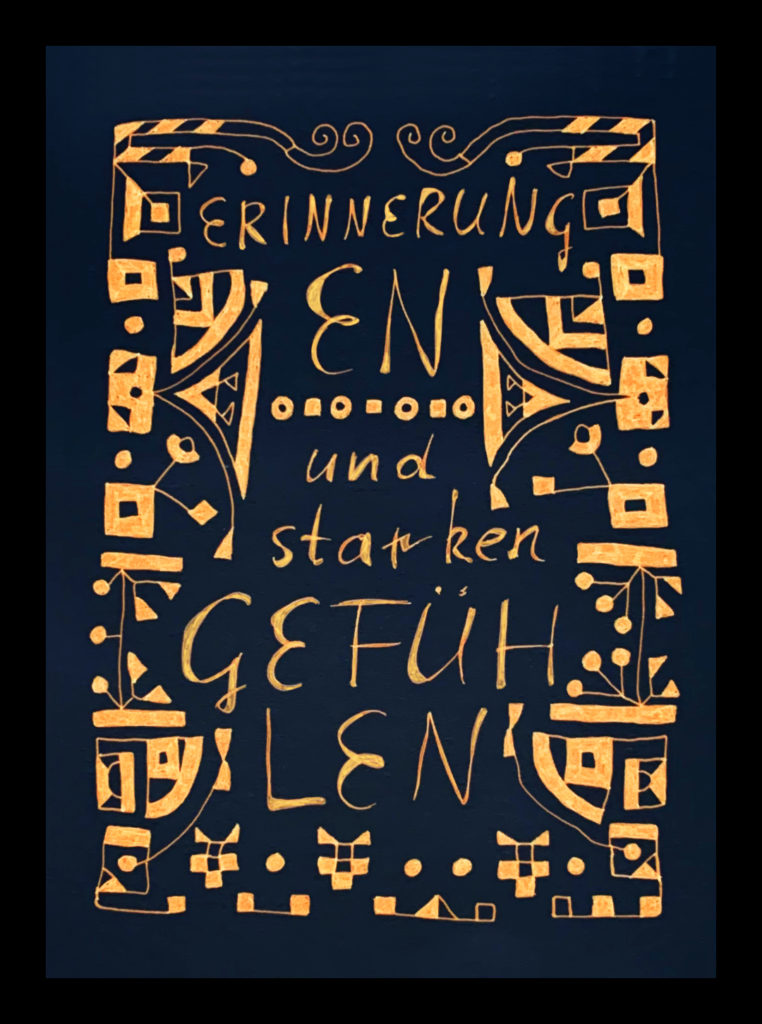 ERINNERUNG
EN
und
starken
GEFÜH
LEN